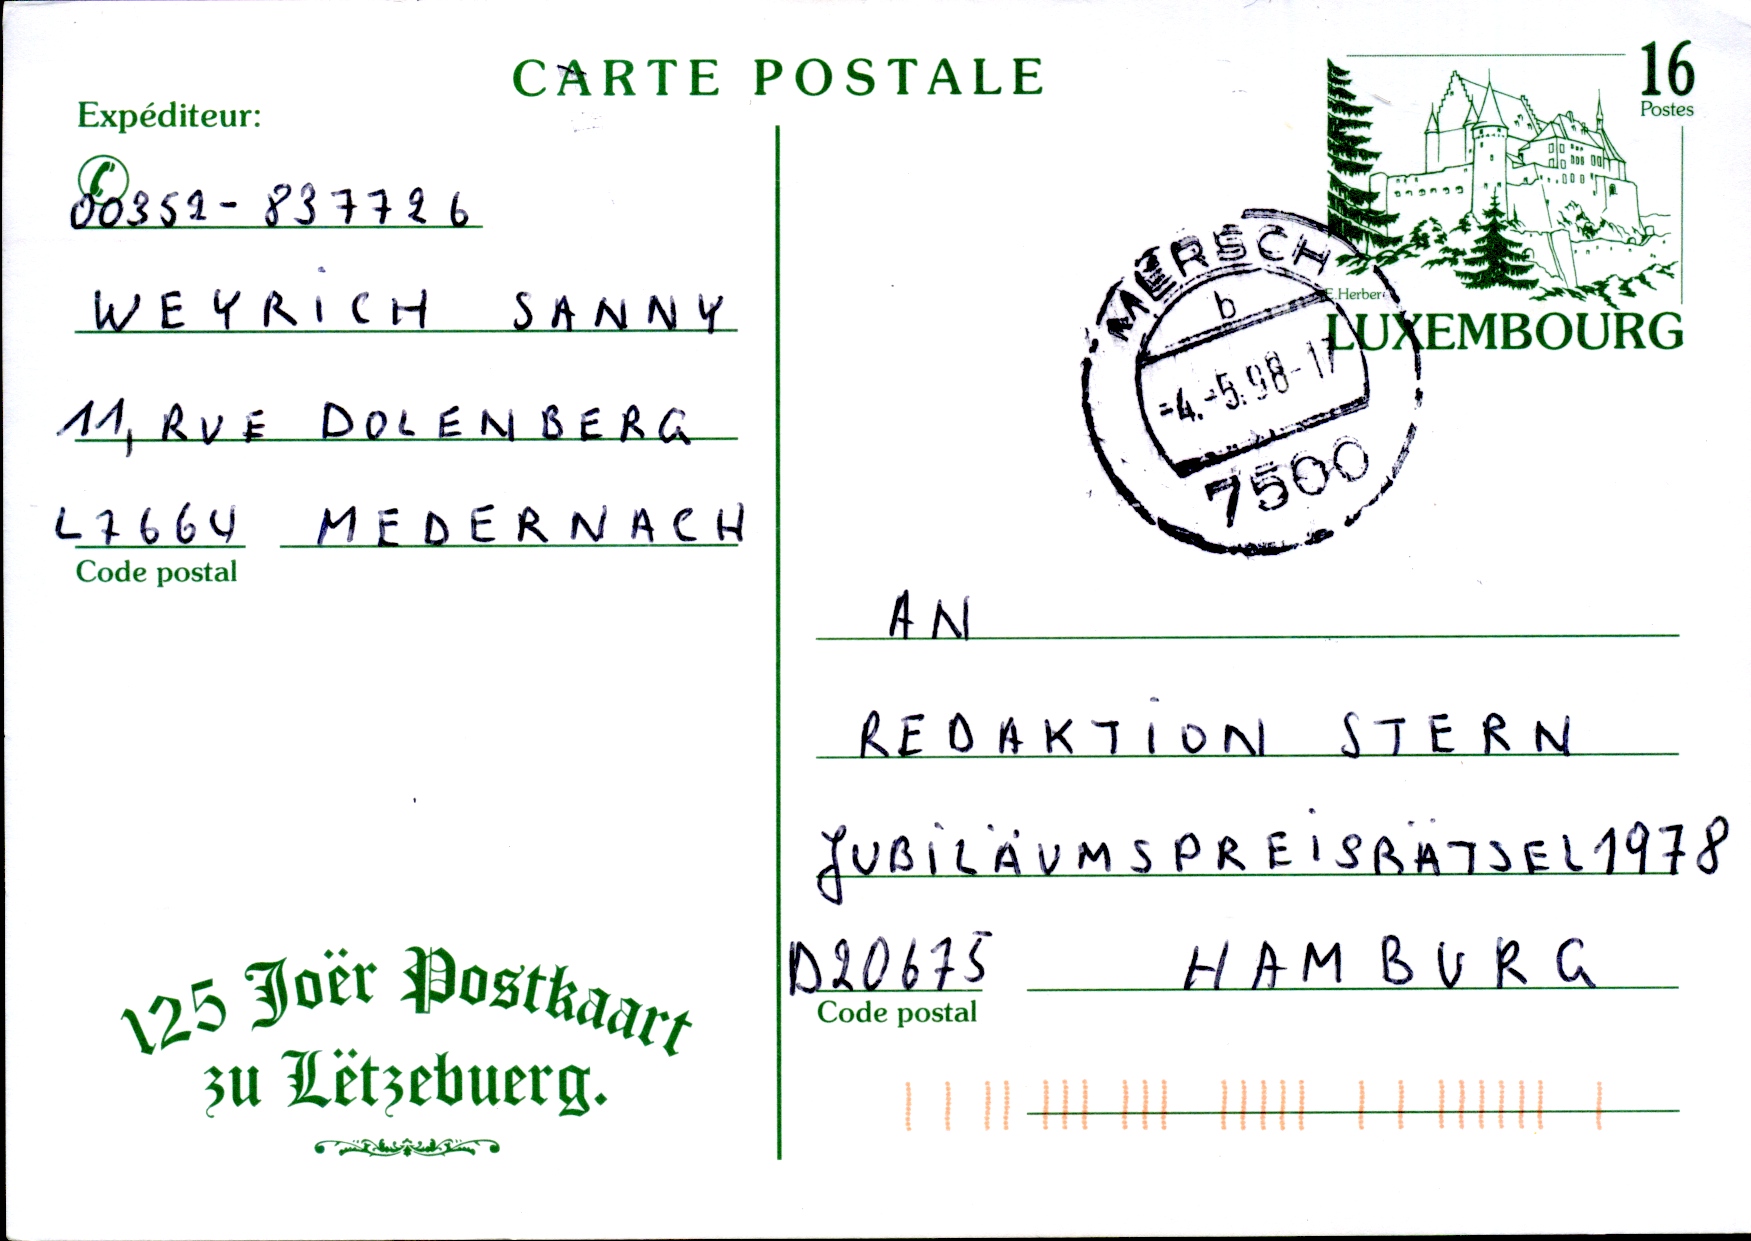 CARTE POSTALE
Expéditeur:
00352-837726
WEYRICH SANNY
11, RUE DOLENBERG
L7664 MEDERNACH
Code postal
125 Joër Postkaart
zu Lëtzebuerg.
16
Postes
E.Herber
LUXEMBOURG
MERSCH
b
-4.-5.98-17
7500
AN
REDAKTION STERN
JUBILÄUMSPREISRÄTSEL 1978
D20675 HAMBURG
Code postal